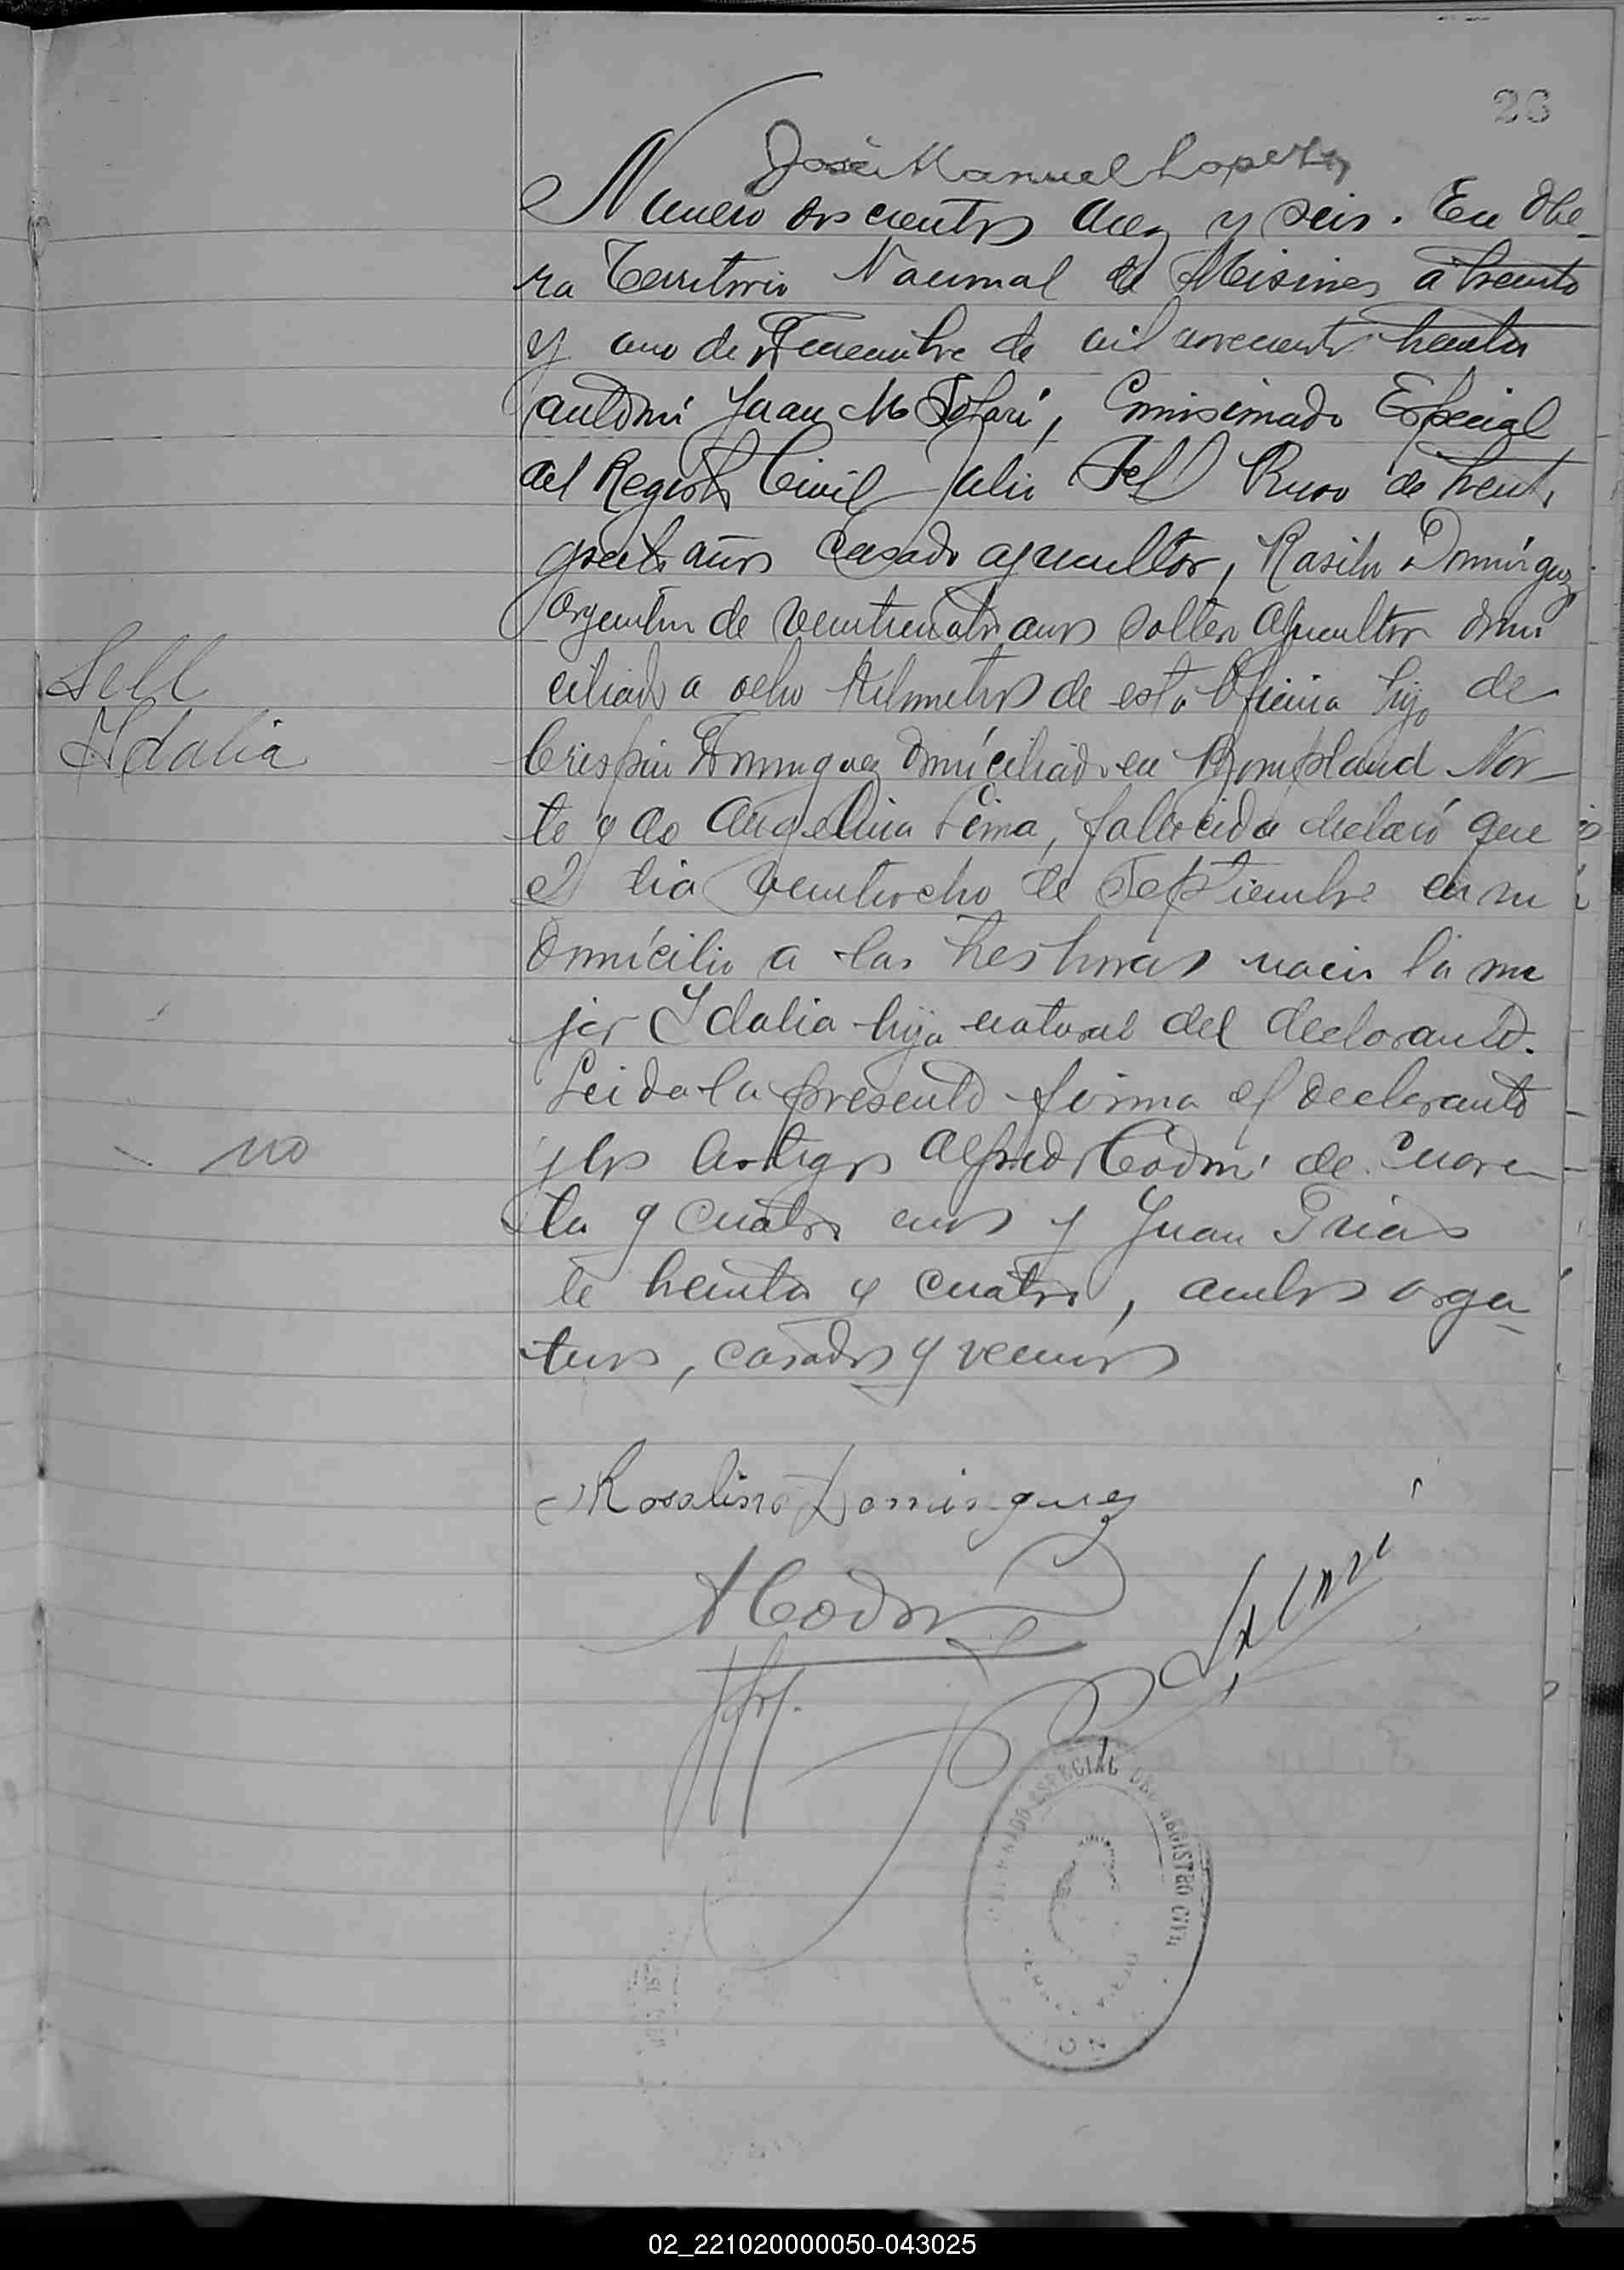 26
José Manuel Lopez
Numero doscientos diez y seis. En Obe-
ra Territorio Nacional de Misiones a treinta
y uno de de mil novecientos treinta
ante mi Juan M Solari, Comisionado Especial
del Registro Civil Julio Sell Ruso de treinta
años casado agricultor, Domínguez
argentino de veinticuatro años soltero agricultor domi
ciliado a ocho kilometros de esta Oficina hijo de
Crispin Dominguez domiciliado en Bompland Nor-
te y de Angelina Lima, fallecida declaró que
el dia veintiocho de Septiembre en su
domicilio a las tres horas nacio la mu
jer Idalia hija natural del declarante.
Leida la presente firma el declarante
y los testigos Alfredo Codn de cuaren
ta y cuatro años y Juan
de treinta y cuatro, ambos argen-
tinos, casados y vecinos
Sell
Idalia
no
Rosalino Dominguez
ACodn
ESPECIAL DEL REGISTRO CIVIL
02_221020000050-043025